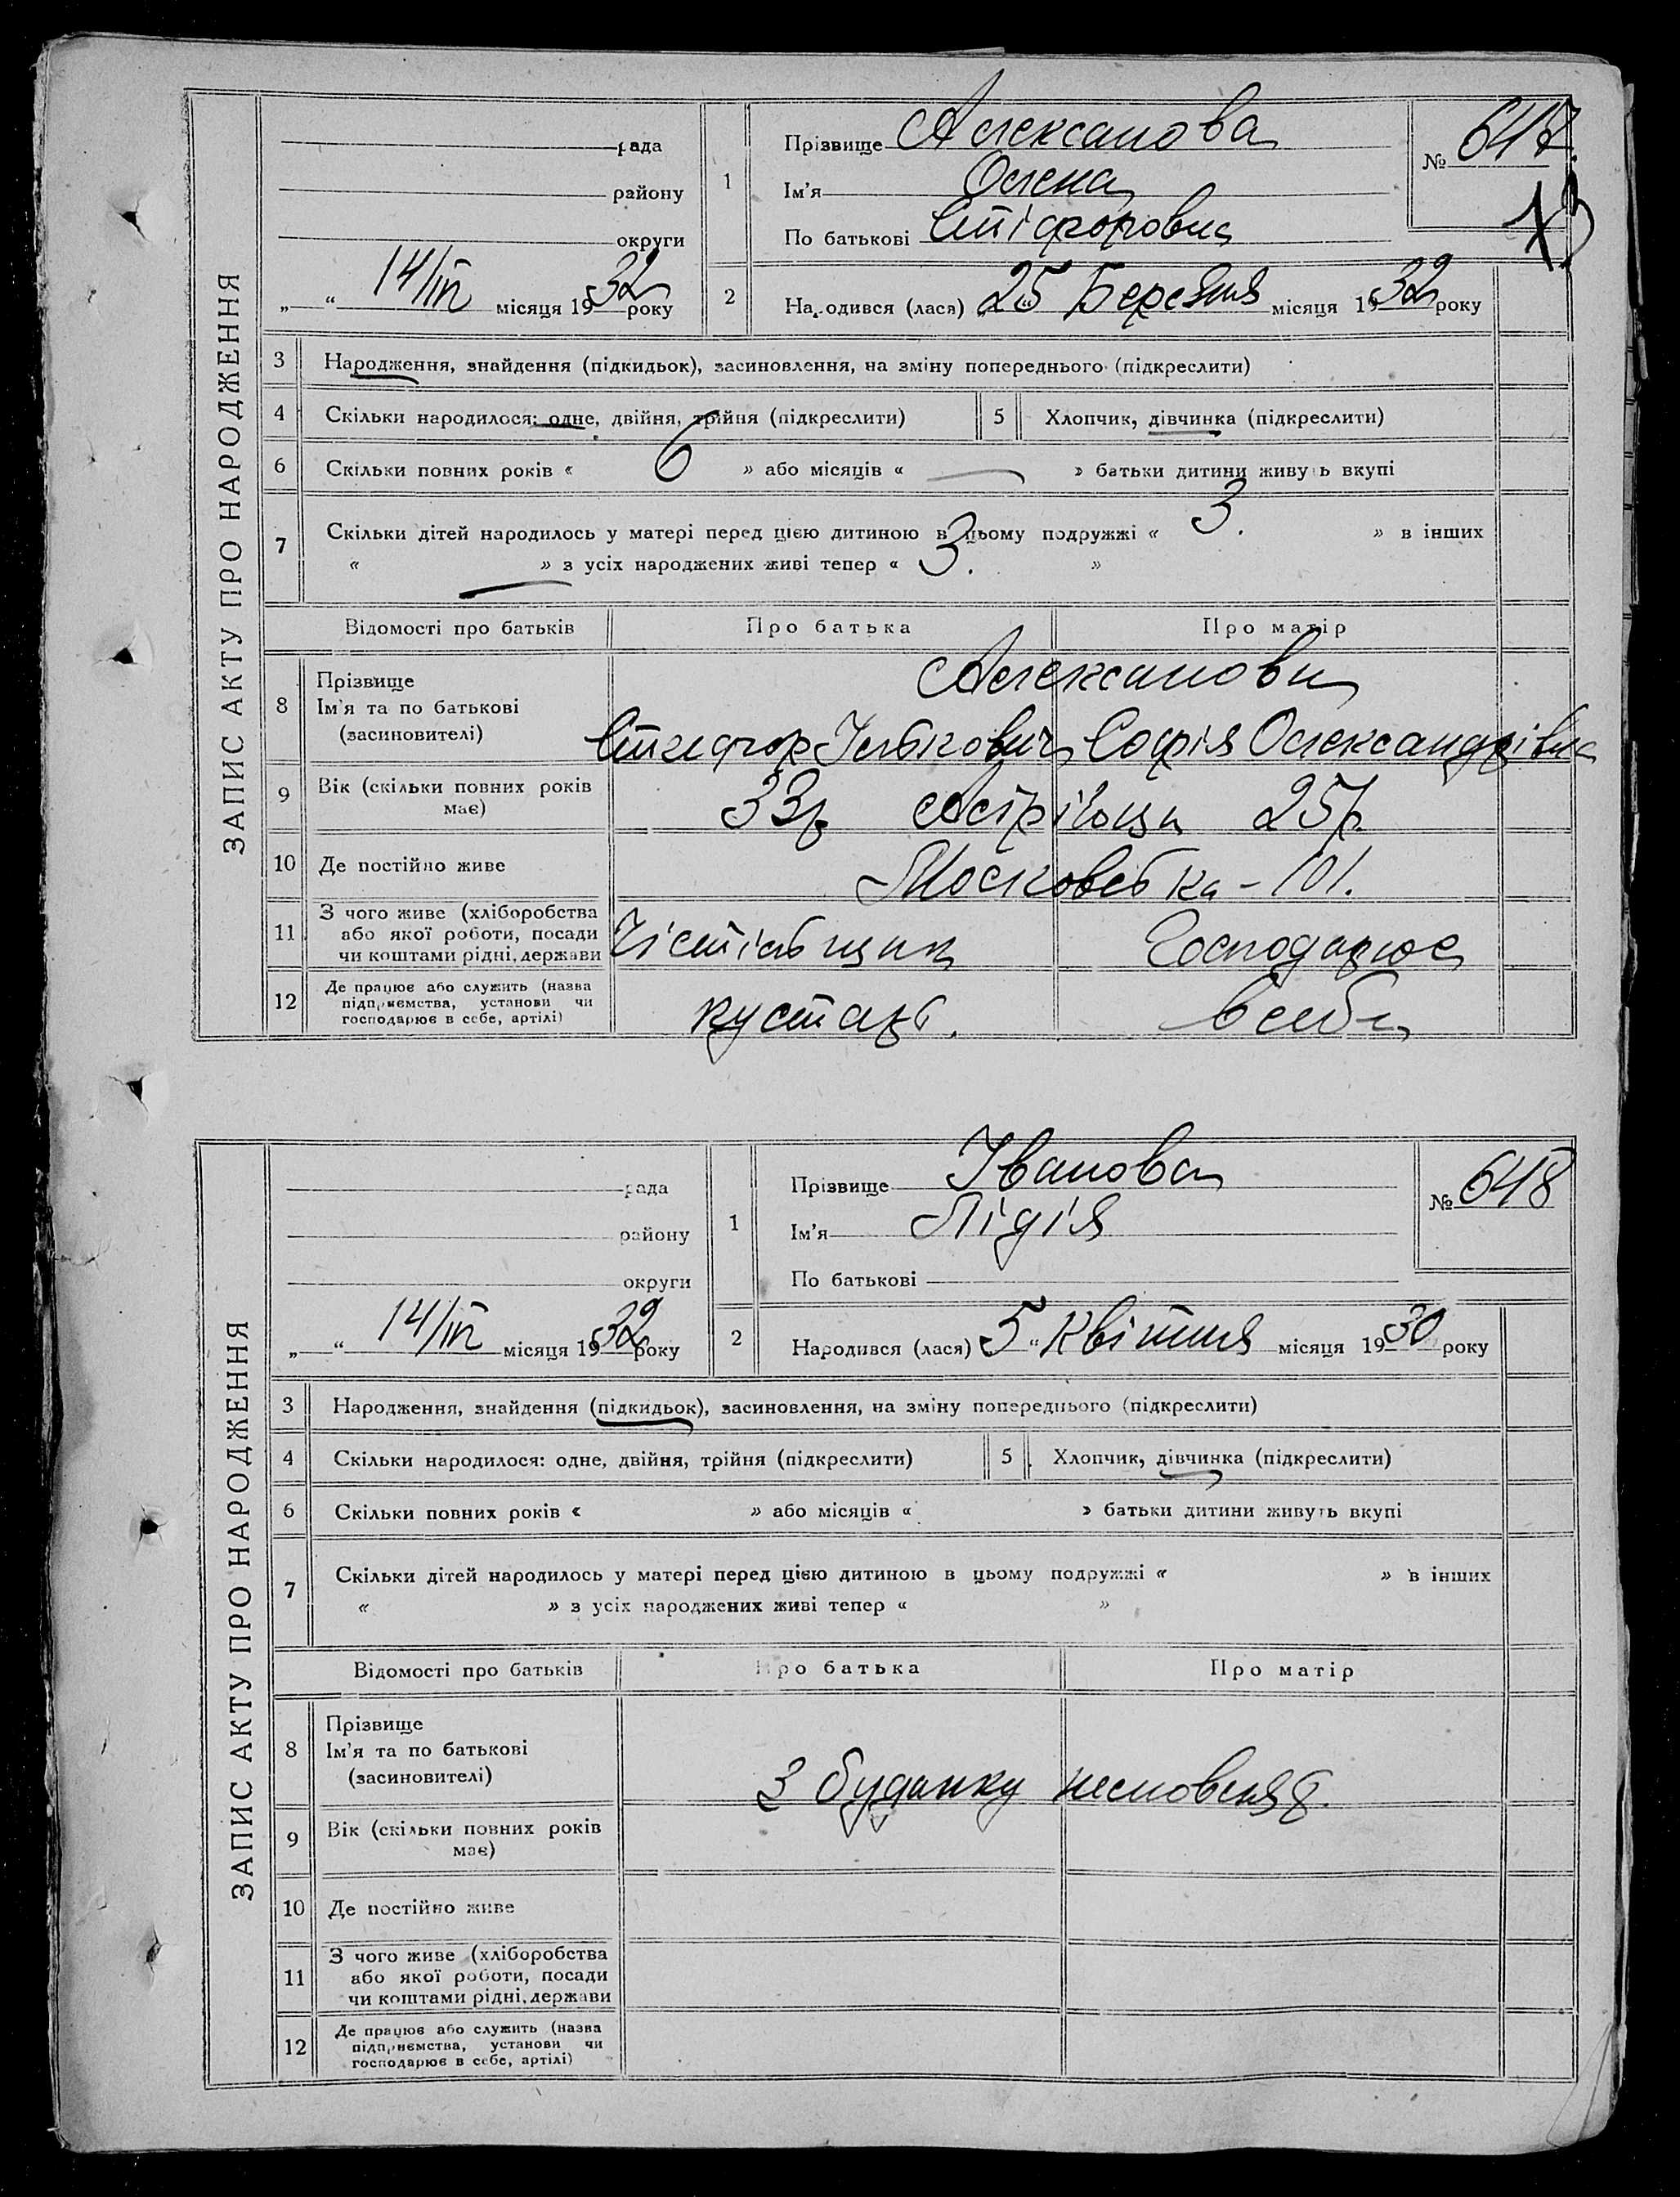 ЗАПИС АКТУ ПРО НАРОДЖЕННЯ
рада
району
округи
„ “ 14/IV місяця 1932 року
1
Прізвище Алексанова
Ім'я Олена
По батькові
№ 647.
2
Народився (лася) „25“ Березня місяця 1932 року
3 Народження, знайдення (підкидьок), засиновлення, на зміну попереднього (підкреслити)
4 Скільки народилося: одне, двійня, трійня (підкреслити)
5 Хлопчик, дівчинка (підкреслити)
6 Скільки повних років « 6 » або місяців « — » батьки дитини живуть вкупі
7 Скільки дітей народилось у матері перед цією дитиною в цьому подружжі « 3. » в інших
« — » з усіх народжених живі тепер « 3. »
Відомості про батьків Про батька Про матір
8 Прізвище
Ім'я та по батькові
(засиновителі)
Алексанови
Софія Олександрівна
9 Вік (скільки повних років
має)
33р. 25р.
10 Де постійно живе
Московська - 101.
11 З чого живе (хліборобства
або якої роботи, посади
чи коштами рідні, держави
Господарює
12 Де працює або служить (назва
підприємства, установи чи
господарює в себе, артілі)
кустарь. в себе
ЗАПИС АКТУ ПРО НАРОДЖЕННЯ
рада
району
округи
„ “ 14/IV місяця 1932 року
1
Прізвище Іванова
Ім'я Лідія
По батькові
№ 648
2
Народився (лася) 5 “ Квітня місяця 1930 року
3 Народження, знайдення (підкидьок), засиновлення, на зміну попереднього (підкреслити)
4 Скільки народилося: одне, двійня, трійня (підкреслити)
5 Хлопчик, дівчинка (підкреслити)
6 Скільки повних років « » або місяців « » батьки дитини живуть вкупі
7 Скільки дітей народилось у матері перед цією дитиною в цьому подружжі « » в інших
« » з усіх народжених живі тепер « »
Відомості про батьків Про батька Про матір
8 Прізвище
Ім'я та по батькові
(засиновителі)
З будинку немовлят.
9 Вік (скільки повних років
має)
10 Де постійно живе
11 З чого живе (хліборобства
або якої роботи, посади
чи коштами рідні, держави
12 Де працює або служить (назва
підприємства, установи чи
господарює в себе, артілі)